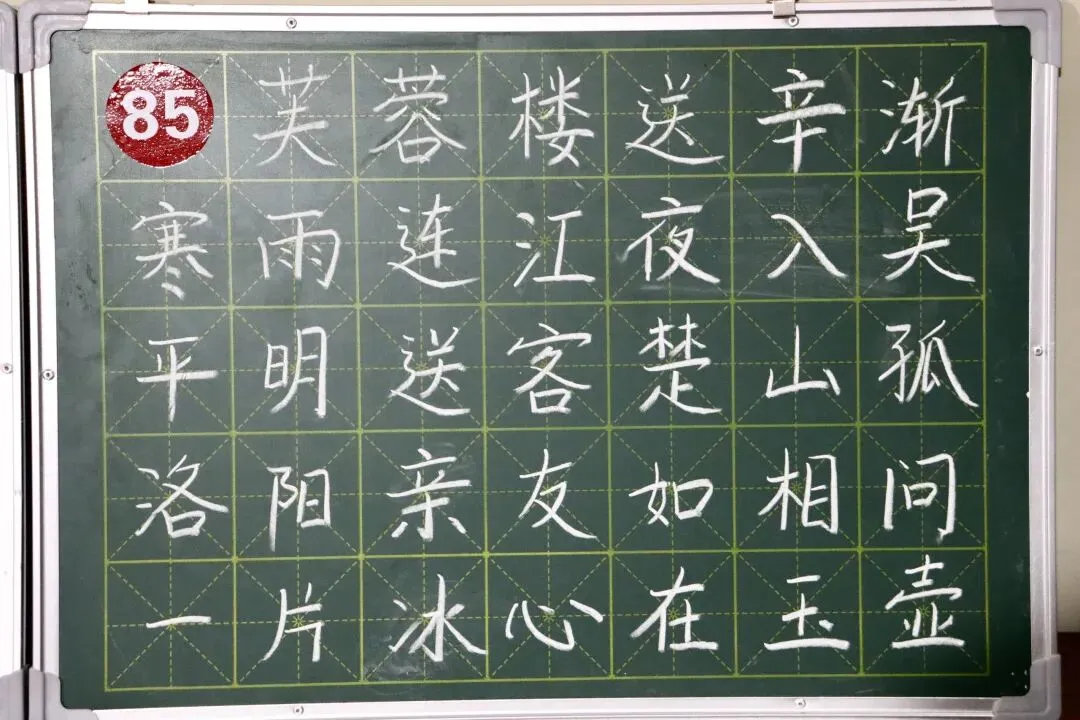 85 芙蓉楼送辛渐
寒雨连江夜入吴
平明送客楚山孤
洛阳亲友如相问
一片冰心在玉壶